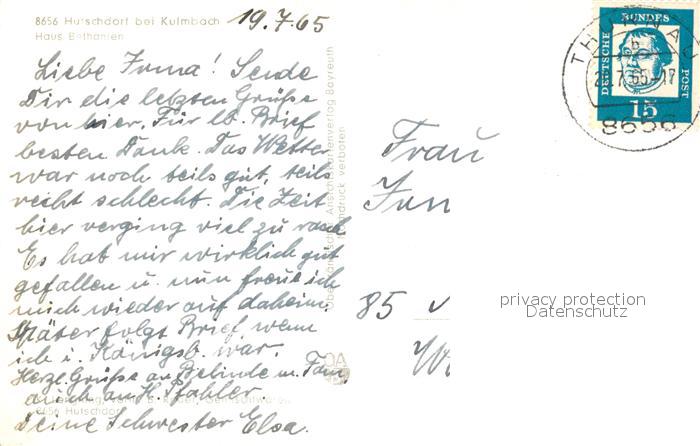 8656 Hutschdorf bei Kulmbach
Haus Bethanien
19.7.65
Liebe Irma! Sende
Dir die letzten Grüße
von hier. Für lb. Brief
besten Dank. Das Wetter
war noch teils gut, teils
recht schlecht. Die Zeit
hier verging viel zu rasch
Es hat mir wirklich gut
gefallen u. nun freue ich
mich wieder auf daheim.
Später folgt Brief, wenn
ich i. Königsb. war.
Herzl. Grüße an Belinde m. Fam.
auch an H. Stahler
Deine Schwester Elsa.
8656 Hutschdorf
Oberfränkischer Ansichtskartenverlag Bayreuth
Nachdruck verboten
DEUTSCHE BUNDESPOST
15
THURNAU
65-17
8656
Frau
85
privacy protection
Datenschutz